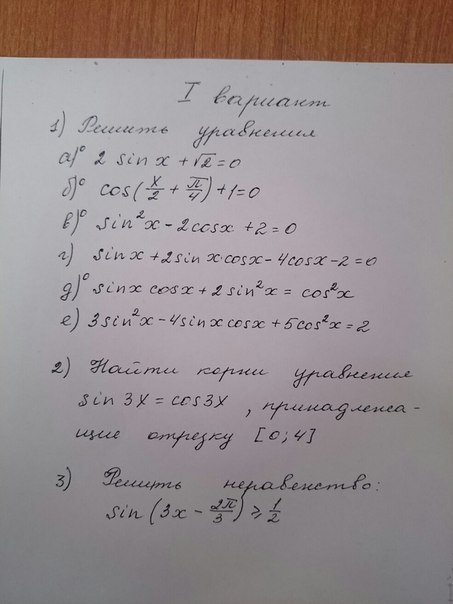 I вариант
1) Решить уравнения
а)° 2 sin x + √2 = 0
б)° cos(x/2 + π/4) + 1 = 0
в)° sin²x - 2cosx + 2 = 0
г) sinx + 2sin x cosx - 4cosx - 2 = 0
д)° sinx cosx + 2 sin²x = cos²x
е) 3sin²x - 4sinx cosx + 5cos²x = 2
2) Найти корни уравнение
sin 3x = cos3x , принадлежа-
щие отрезку [0; 4]
3) Решить неравенство:
sin (3x - 2π/3) ≥ 1/2